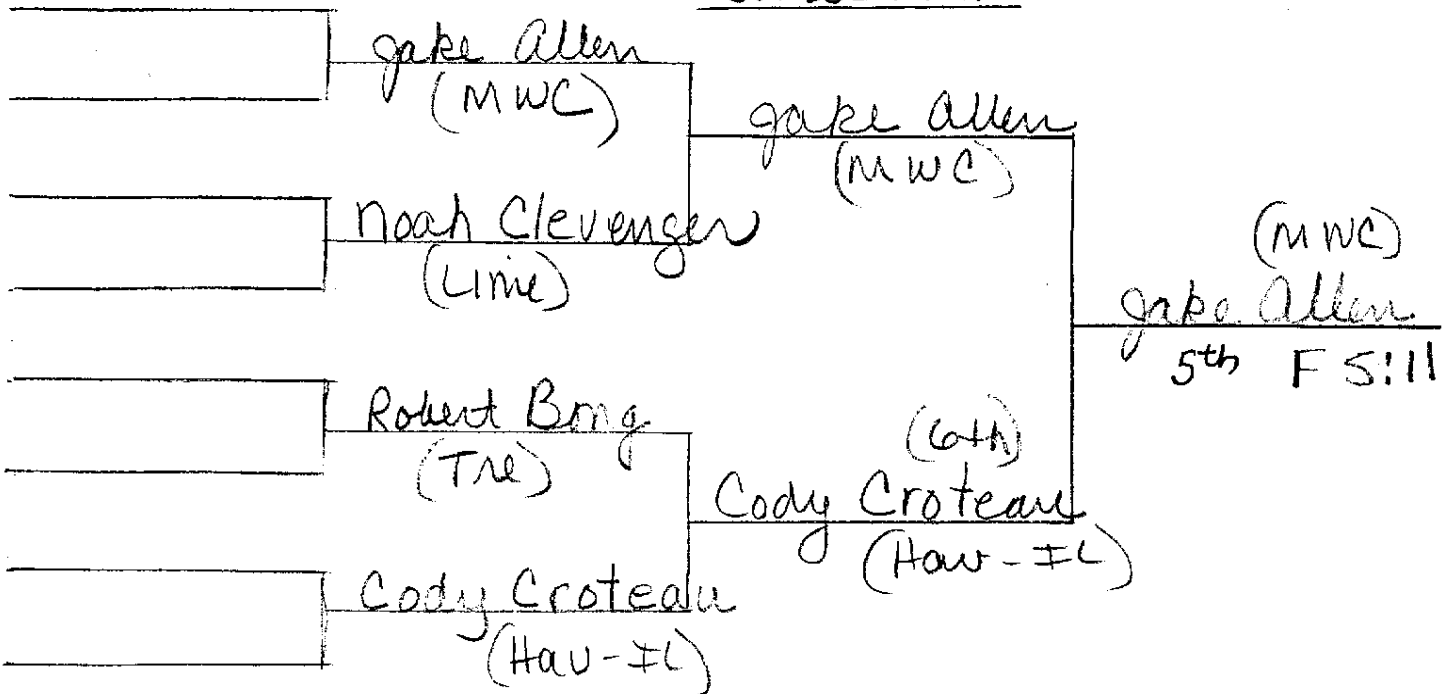 Jake Allen
(MWC)
Noah Clevenger
(Lime)
Robert Bong
(Tre)
Cody Croteau
(Hav-IL)
Jake Allen
(MWC)
(6th)
Cody Croteau
(Hav-IL)
(MWC)
Jake Allen
5th F 5:11